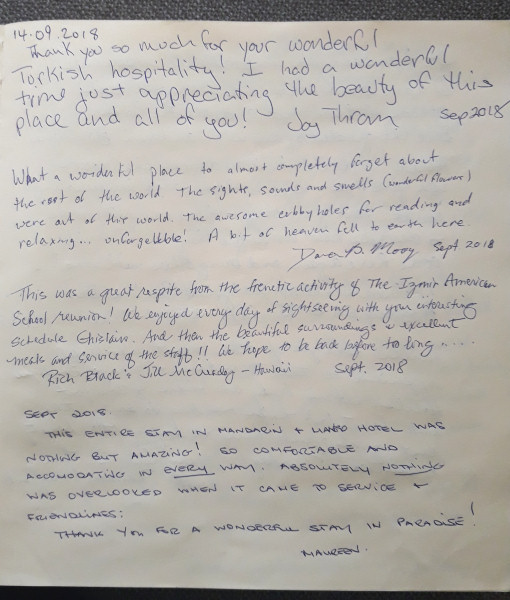 14.09.2018
Thank you so much for your wonderful
Turkish hospitality! I had a wonderful
time just appreciating the beauty of this
place and all of you! Joy Sep 2018
What a wonderful place to almost completely forget about
the rest of the world. The sights, sounds and smells (wonderful flowers)
were out of this world. The awesome cubbyholes for reading and
relaxing... unforgettable! A bit of heaven fell to earth here.
Sept 2018
This was a great respite from the frenetic activity of The Izmir American
School reunion! We enjoyed every day of sightseeing with your interesting
schedule Ghislain. And then the beautiful surroundings & excellent
meals and service of the staff!! We hope to be back before too long....
Rich Black & Jill - Hawaii Sept. 2018
SEPT 2018.
THIS ENTIRE STAY IN MANDARIN + HOTEL WAS
NOTHING BUT AMAZING! SO COMFORTABLE AND
ACCOMODATING IN EVERY WAY. ABSOLUTELY NOTHING
WAS OVERLOOKED WHEN IT CAME TO SERVICE +
FRIENDLINES:
THANK YOU FOR A WONDERFUL STAY IN PARADISE!
MAUREEN.